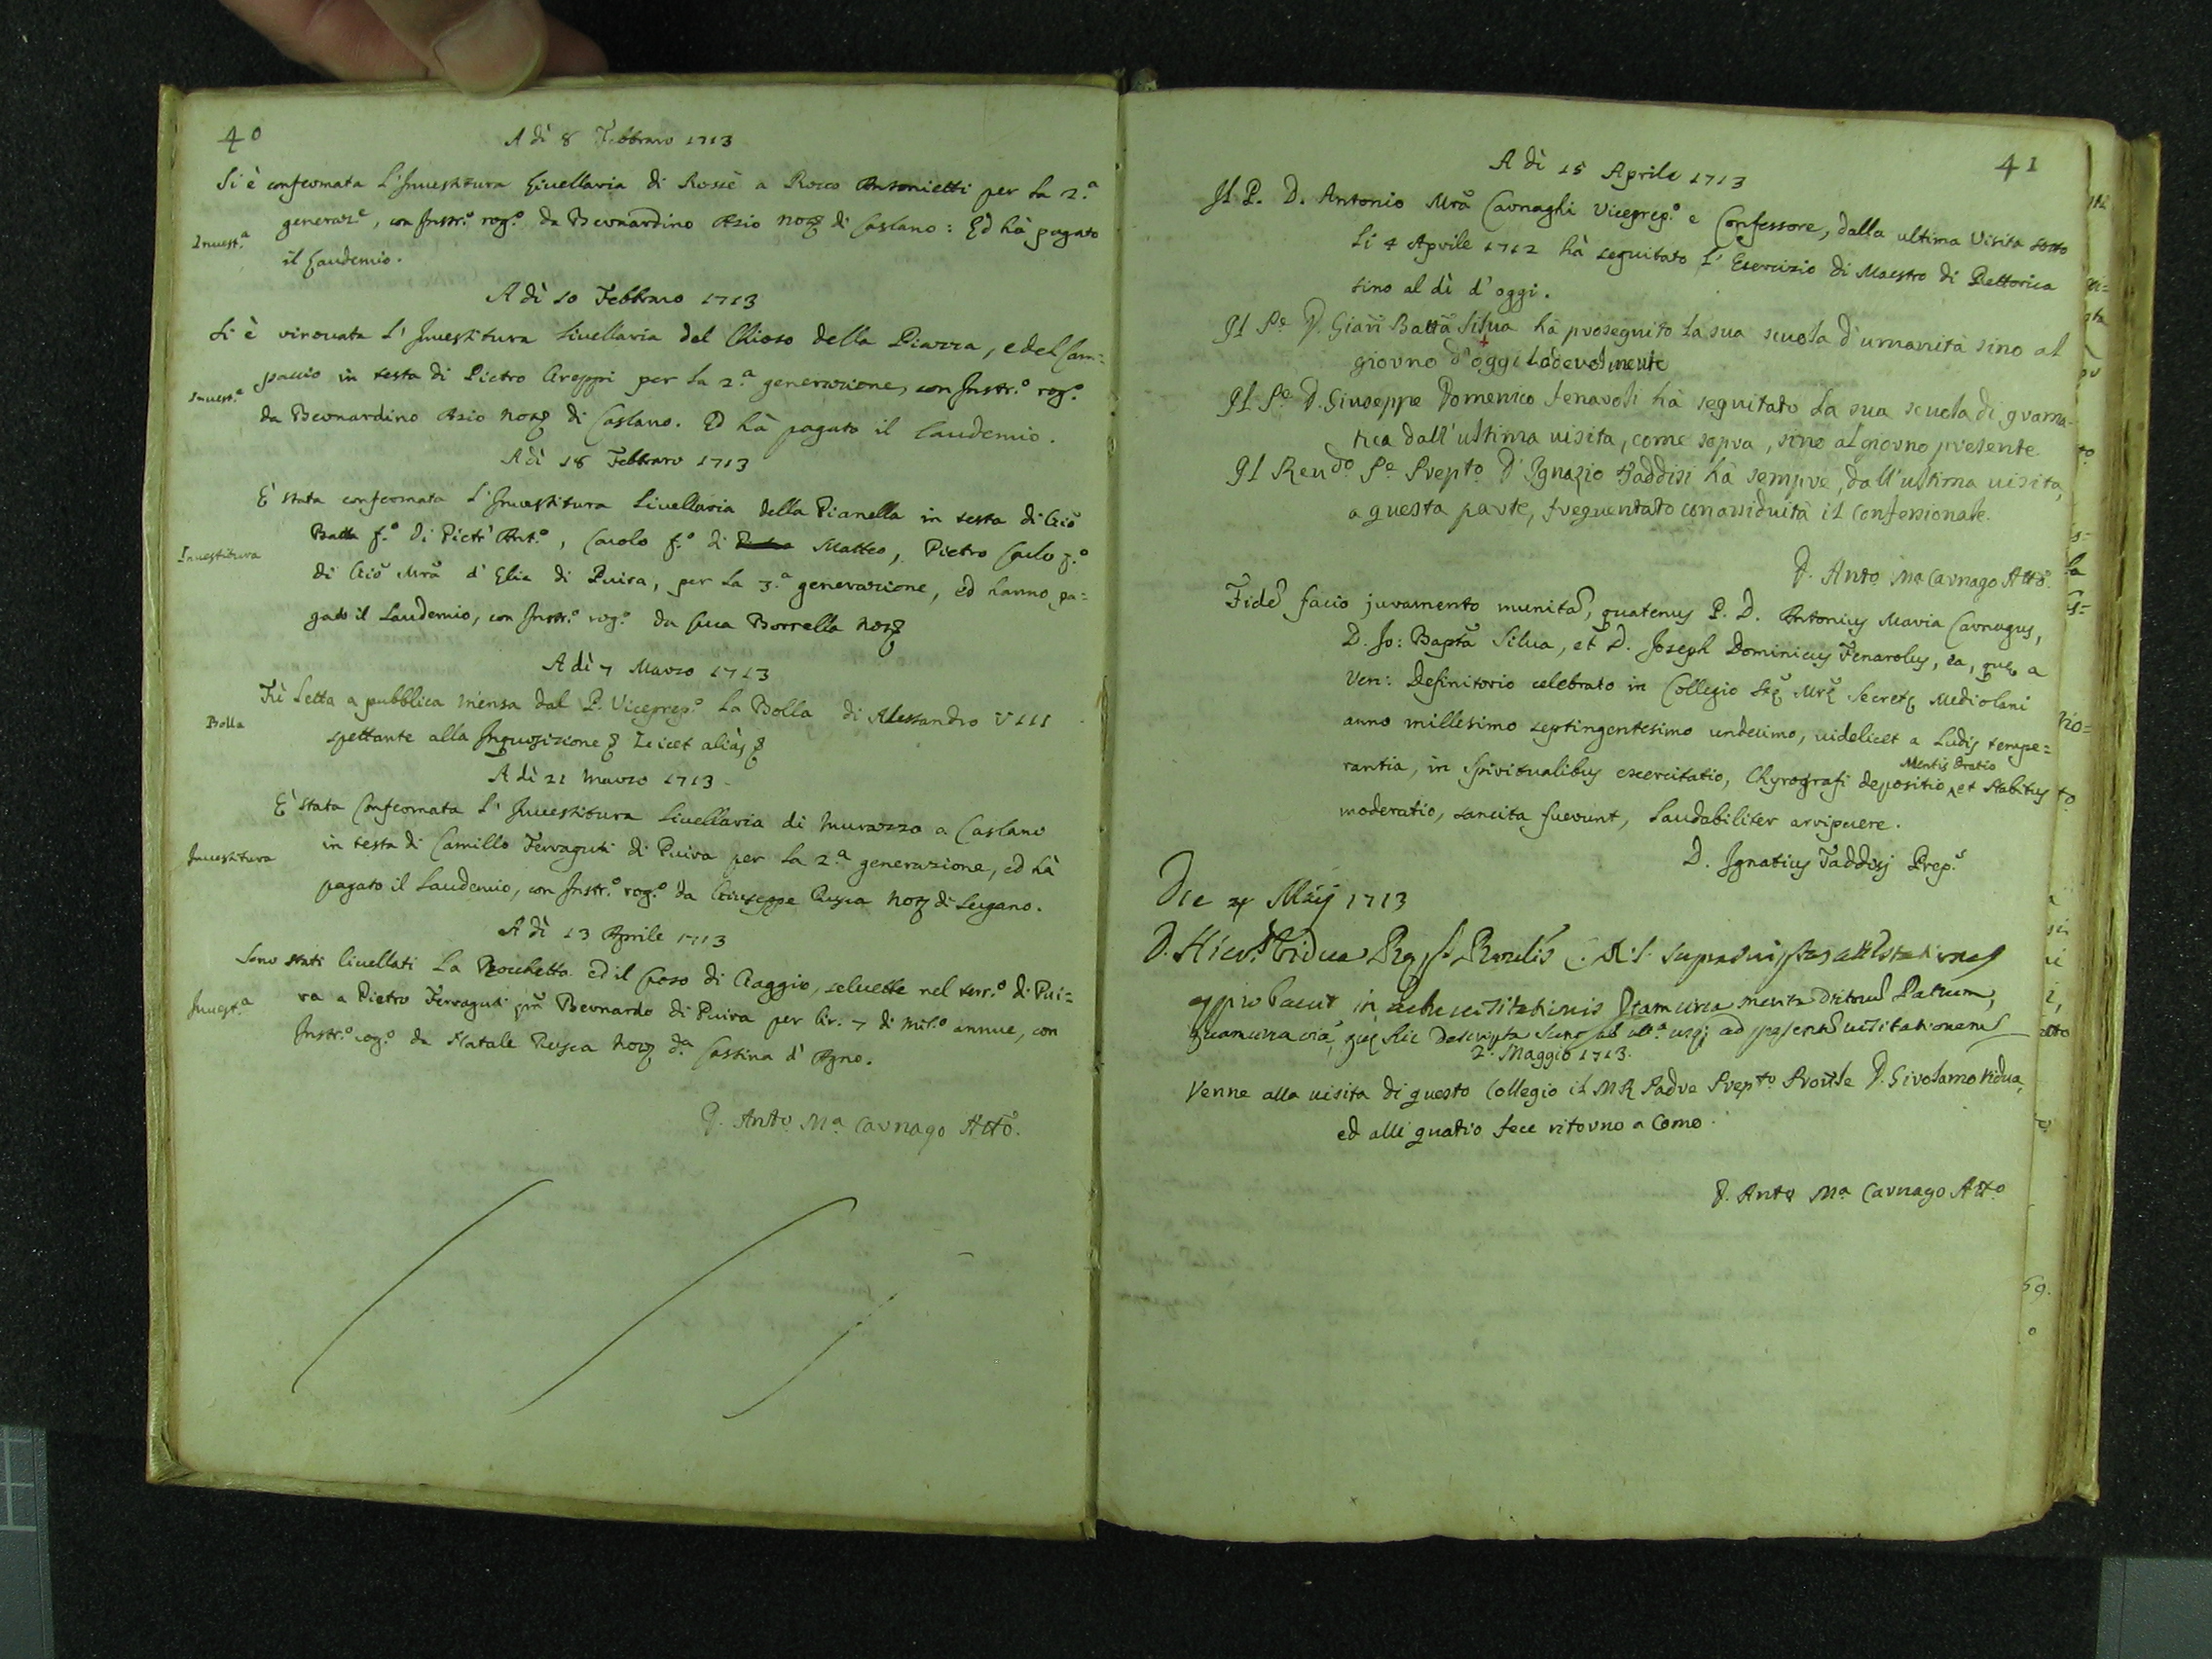 40
A dì 8 Febbraro 1713
Si è confermata l'Investitura livellaria di Roscè a Rocco Antonietti per la 2.ª
Invest.ª
generaz.e, con Instr.º rog.º da Bernardino Asio not di Caslano: Ed hà pagato
il laudemio.
A dì 10 Febbraro 1713
Si è rinovata l'Investitura livellaria del Chioso della Piazza, e del Cam=
Invest.ª
paccio in testa di Pietro Greppi per la 2.ª generazione, con Instr.º rog.º
da Bernardino Asio not di Caslano. Ed hà pagato il laudemio.
A dì 18 Febbraro 1713
È stata confermata l'Investitura livellaria della Pianella in testa di Giõ
Investitura
Batta f.º di Pietr' Ant.º, Carlo f.º di Matteo, Pietro Carlo f.º
di Giõ Mrã d'Elia di Puira, per la 3.ª generazione, ed hanno pa=
gato il laudemio, con Instr.º rog.º da Luca Borrella not
A dì 7 Marzo 1713
Bolla
Fù letta a pubblica mensa dal P. Viceprep.º la Bolla di Alessandro VIII
spettante alla Inquisizione & Licet aliàs &
A dì 21 Marzo 1713
È stata confermata l'Investitura livellaria di Murazzo a Caslano
Investitura
in testa di Camillo Ferraguti di Puira per la 2.ª generazione, ed hà
pagato il laudemio, con Instr.º rog.º da Giuseppe Rusca not di Lugano.
A dì 13 Aprile 1713
Sono stati livellati la Rocchetta ed il Croso di Craggio, selvette nel terr.º di Pui=
Invest.ª
ra a Pietro Ferraguti qm Bernardo di Puira per lir. 7 di Mil.º annue, con
Instr.º rog.º da Natale Rusca not d.ª Cassina d'Agno.
D. Ant.º M.ª Carnago Att.º
41
A dì 15 Aprile 1713
Il P. D. Antonio Mrã Carnaghi Viceprep.º e Confessore, dalla ultima Visita sotto
li 4 Aprile 1712 hà seguitato l'Esercizio di Maestro di Rettorica
sino al dì d'oggi.
Il P.e D. Gian Battã Silva hà proseguito la sua scuola d'umanità sino al
giorno d'oggi lodevolmente
Il P.e D. Giuseppe Domenico Fenaroli hà seguitato la sua scuola di grama-
tica dall'ultima visita, come sopra, sino al giorno presente.
Il Rev.do P.e Prep.to D. Ignazio Taddisi hà sempre, dall'ultima visita,
a questa parte, frequentato con assiduità il confessionale.
D. Ant.º M.ª Carnago Att.º
Fidẽ facio juramento munitã, quatenus P. D. Antonius Maria Carnagus,
D. Jo: Baptã Silva, et D. Joseph Dominicus Fenarolus, ea, quę a
Ven: Definitorio celebrato in Collegio Stę Mrę Secretę Mediolani
anno millesimo septingentesimo undecimo, videlicet a Ludis tempe=
rantia, in Spiritualibus exercitatio, Chyrografi depositio, Mentis Oratio et Habitus
moderatio, sancita fuerunt, laudabiliter arripuere.
D. Ignatius Taddisj Prep.s
Die 4 Maij 1713
D. Hier. Vidua Prep. Provlis C. R. S. suprascriptas attestationes
approbavit in actu visitationis
quę hic descripta sunt ab usq; ad psentẽ visitationem
2. Maggio 1713.
Venne alla visita di questo Collegio il M R Padre Prep.to Provĩle D. Girolamo Vidua,
ed alli quatro fece ritorno a Como.
D. Ant.º M.ª Carnago Att.º